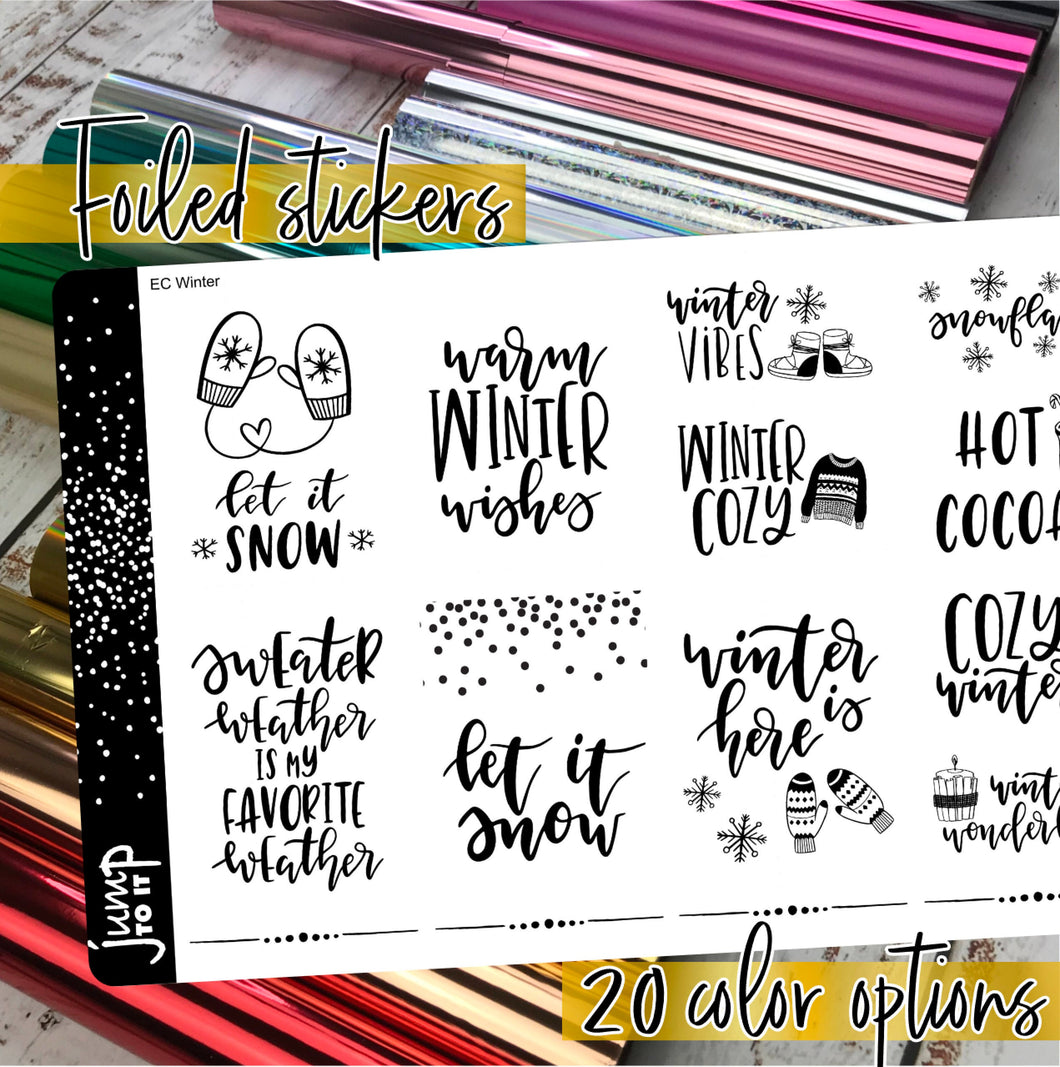 Foiled stickers
EC Winter
let it
SNOW
warm
WINTER
wishes
winter
VIBES
WINTER
COZY
HOT
sweater
weather
is my
FAVORITE
weather
let it
snow
winter
is
here
COZY
jump
TO IT
20 color options